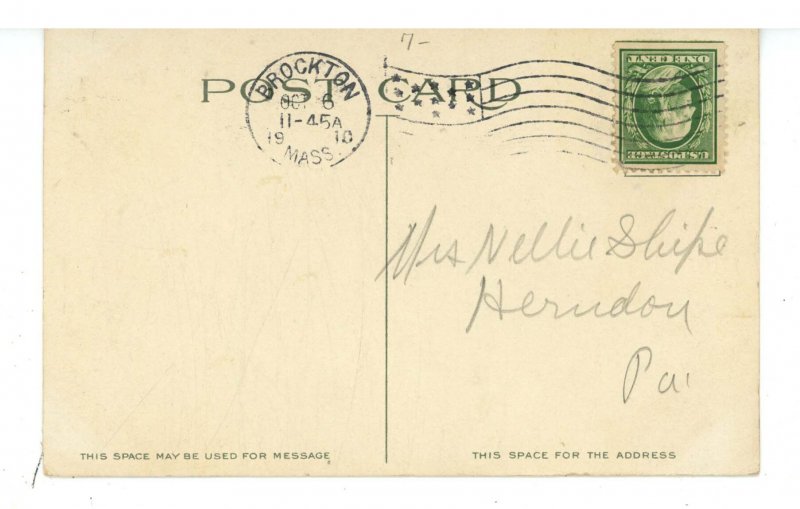 7-
POST CARD
BROCKTON
OCT 6
11-45A
19 10
MASS.
ONE CENT
U.S. POSTAGE
Mrs Nellie Shipe
Herndon
Pa.
THIS SPACE MAY BE USED FOR MESSAGE
THIS SPACE FOR THE ADDRESS